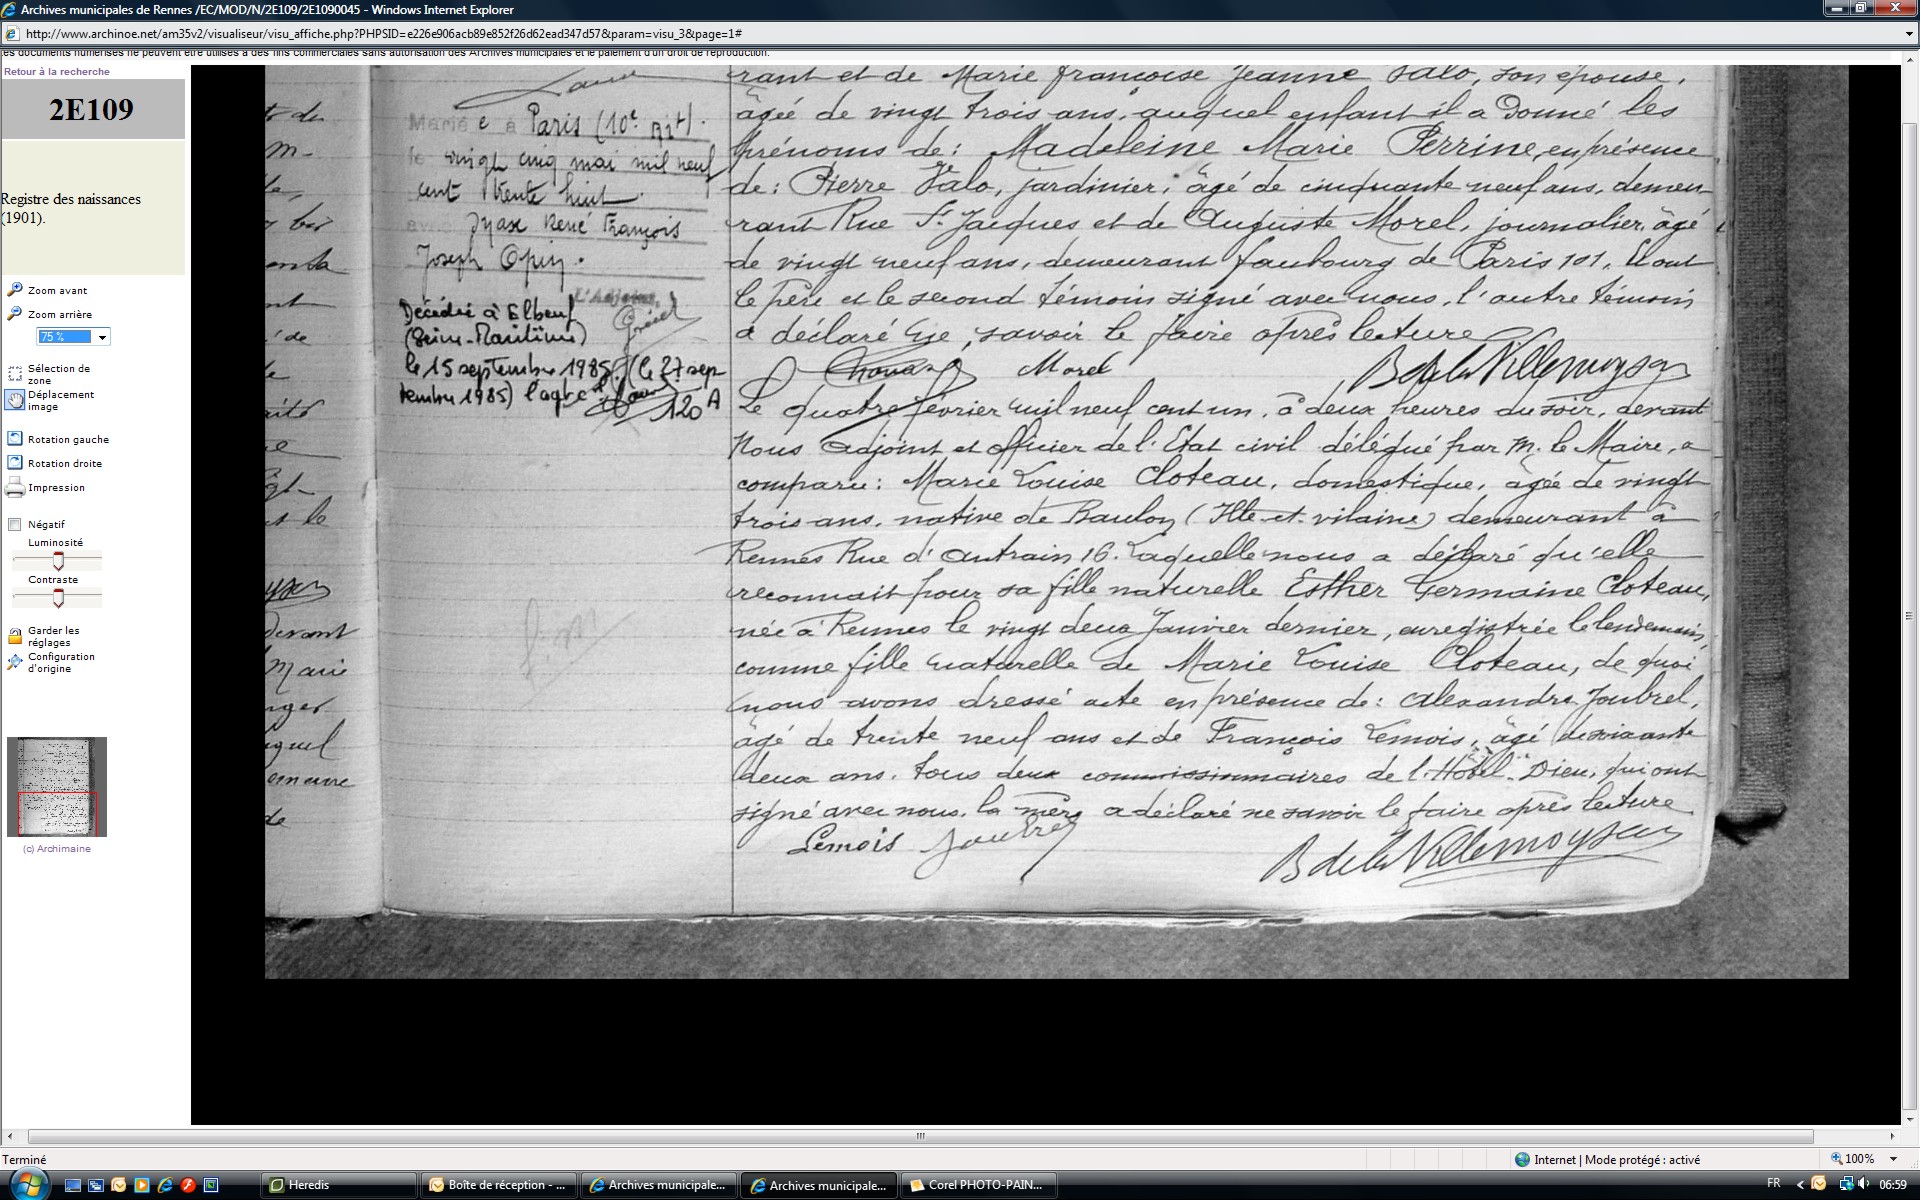 Archives municipales de Rennes /EC/MOD/N/2E109/2E1090045 - Windows Internet Explorer
http://www.archinoe.net/am35v2/visualiseur/visu_affiche.php?PHPSID=e226e906acb89e852f26d62ead347d57&param=visu_3&page=1#
les documents numérisés ne peuvent être utilisés à des fins commerciales sans autorisation des Archives municipales et le paiement d'un droit de reproduction.
Retour à la recherche
2E109
Registre des naissances
(1901).
Zoom avant
Zoom arrière
75 %
Sélection de
zone
Déplacement
image
Rotation gauche
Rotation droite
Impression
Négatif
Luminosité
Contraste
Garder les
réglages
Configuration
d'origine
(c) Archimaine
Marié e à Paris (10e Art).
le vingt cinq mai mil neuf
cent trente huit.
avec René François
Joseph
L'Adjoint,
Décédée à Elbeuf
(Seine-Maritime)
le 15 septembre 1985. (le 27 sep
tembre 1985)
120 A
rant et de Marie françoise Jeanne Jalo, son épouse,
âgée de vingt trois ans, auquel enfant il a donné les
prénoms de: Madeleine Marie Perrine, en présence
de: Pierre Jalo, jardinier, âgé de cinquante neuf ans, demeu-
rant Rue St Jacques et de Auguste Morel, journalier, âgé
de vingt neuf ans, demeurant faubourg de Paris 101. Et ont
le père et le second témoin signé avec nous, l'autre témoin
a déclaré ne savoir le faire après lecture
Morel
B de la Villemoysan
Le quatre février mil neuf cent un, à deux heures du soir, devant
Nous adjoint et officier de l'Etat civil délégué par M. le Maire, a
comparu: Marie Louise Cloteau, domestique, âgée de vingt
trois ans, native de Baulon (Ille-et-vilaine) demeurant à
Rennes Rue d'Antrain 16. Laquelle nous a déclaré qu'elle
reconnait pour sa fille naturelle Esther Germaine Cloteau,
née à Rennes le vingt deux Janvier dernier, enregistrée le lendemain,
comme fille naturelle de Marie Louise Cloteau, de quoi
nous avons dressé acte en présence de: Alexandre Joubrel,
âgé de trente neuf ans et de François Lemois, âgé de soixante
deux ans, tous deux commissionnaires de l'Hôtel-Dieu, qui ont
signé avec nous, la mère a déclaré ne savoir le faire après lecture
Lemois Joubrel
B de la Villemoysan
Terminé
Internet | Mode protégé : activé
100%
Heredis
Boîte de réception - ...
Archives municipale...
Archives municipale...
Corel PHOTO-PAIN...
FR
06:59